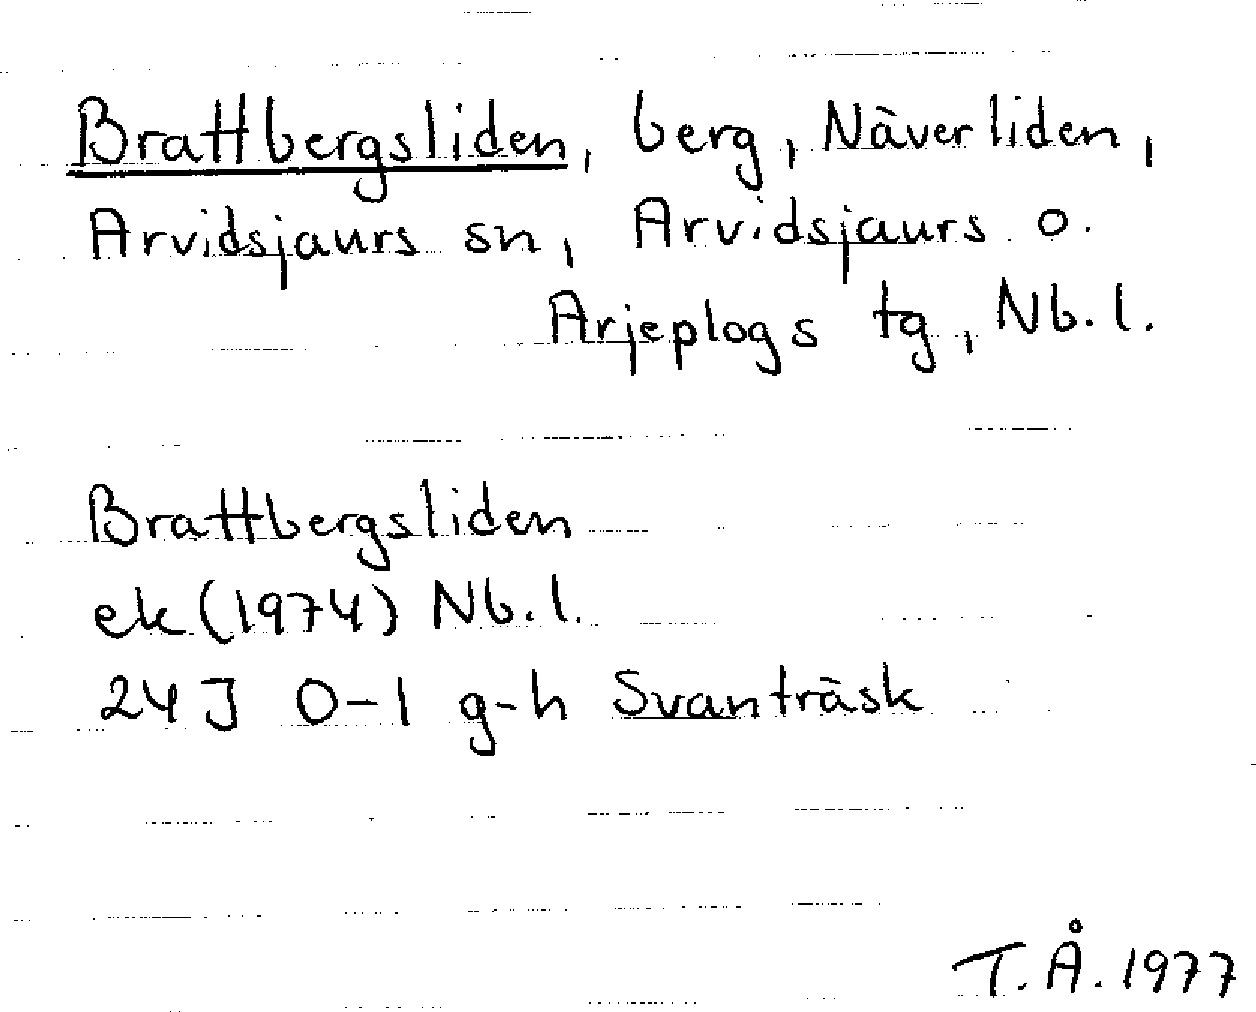 Brattbergsliden, berg, Näverliden,
Arvidsjaurs sn, Arvidsjaurs o.
Arjeplogs tg, Nb.l.
Brattbergsliden
ek (1974) Nb.l.
24J 0-1 g-h Svanträsk
T.Å. 1977